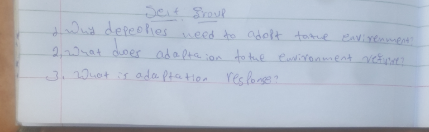 Self Group
1. Why species need to adapt to the environment?
2. What does adaptation to the environment
3. What is adaptation response?